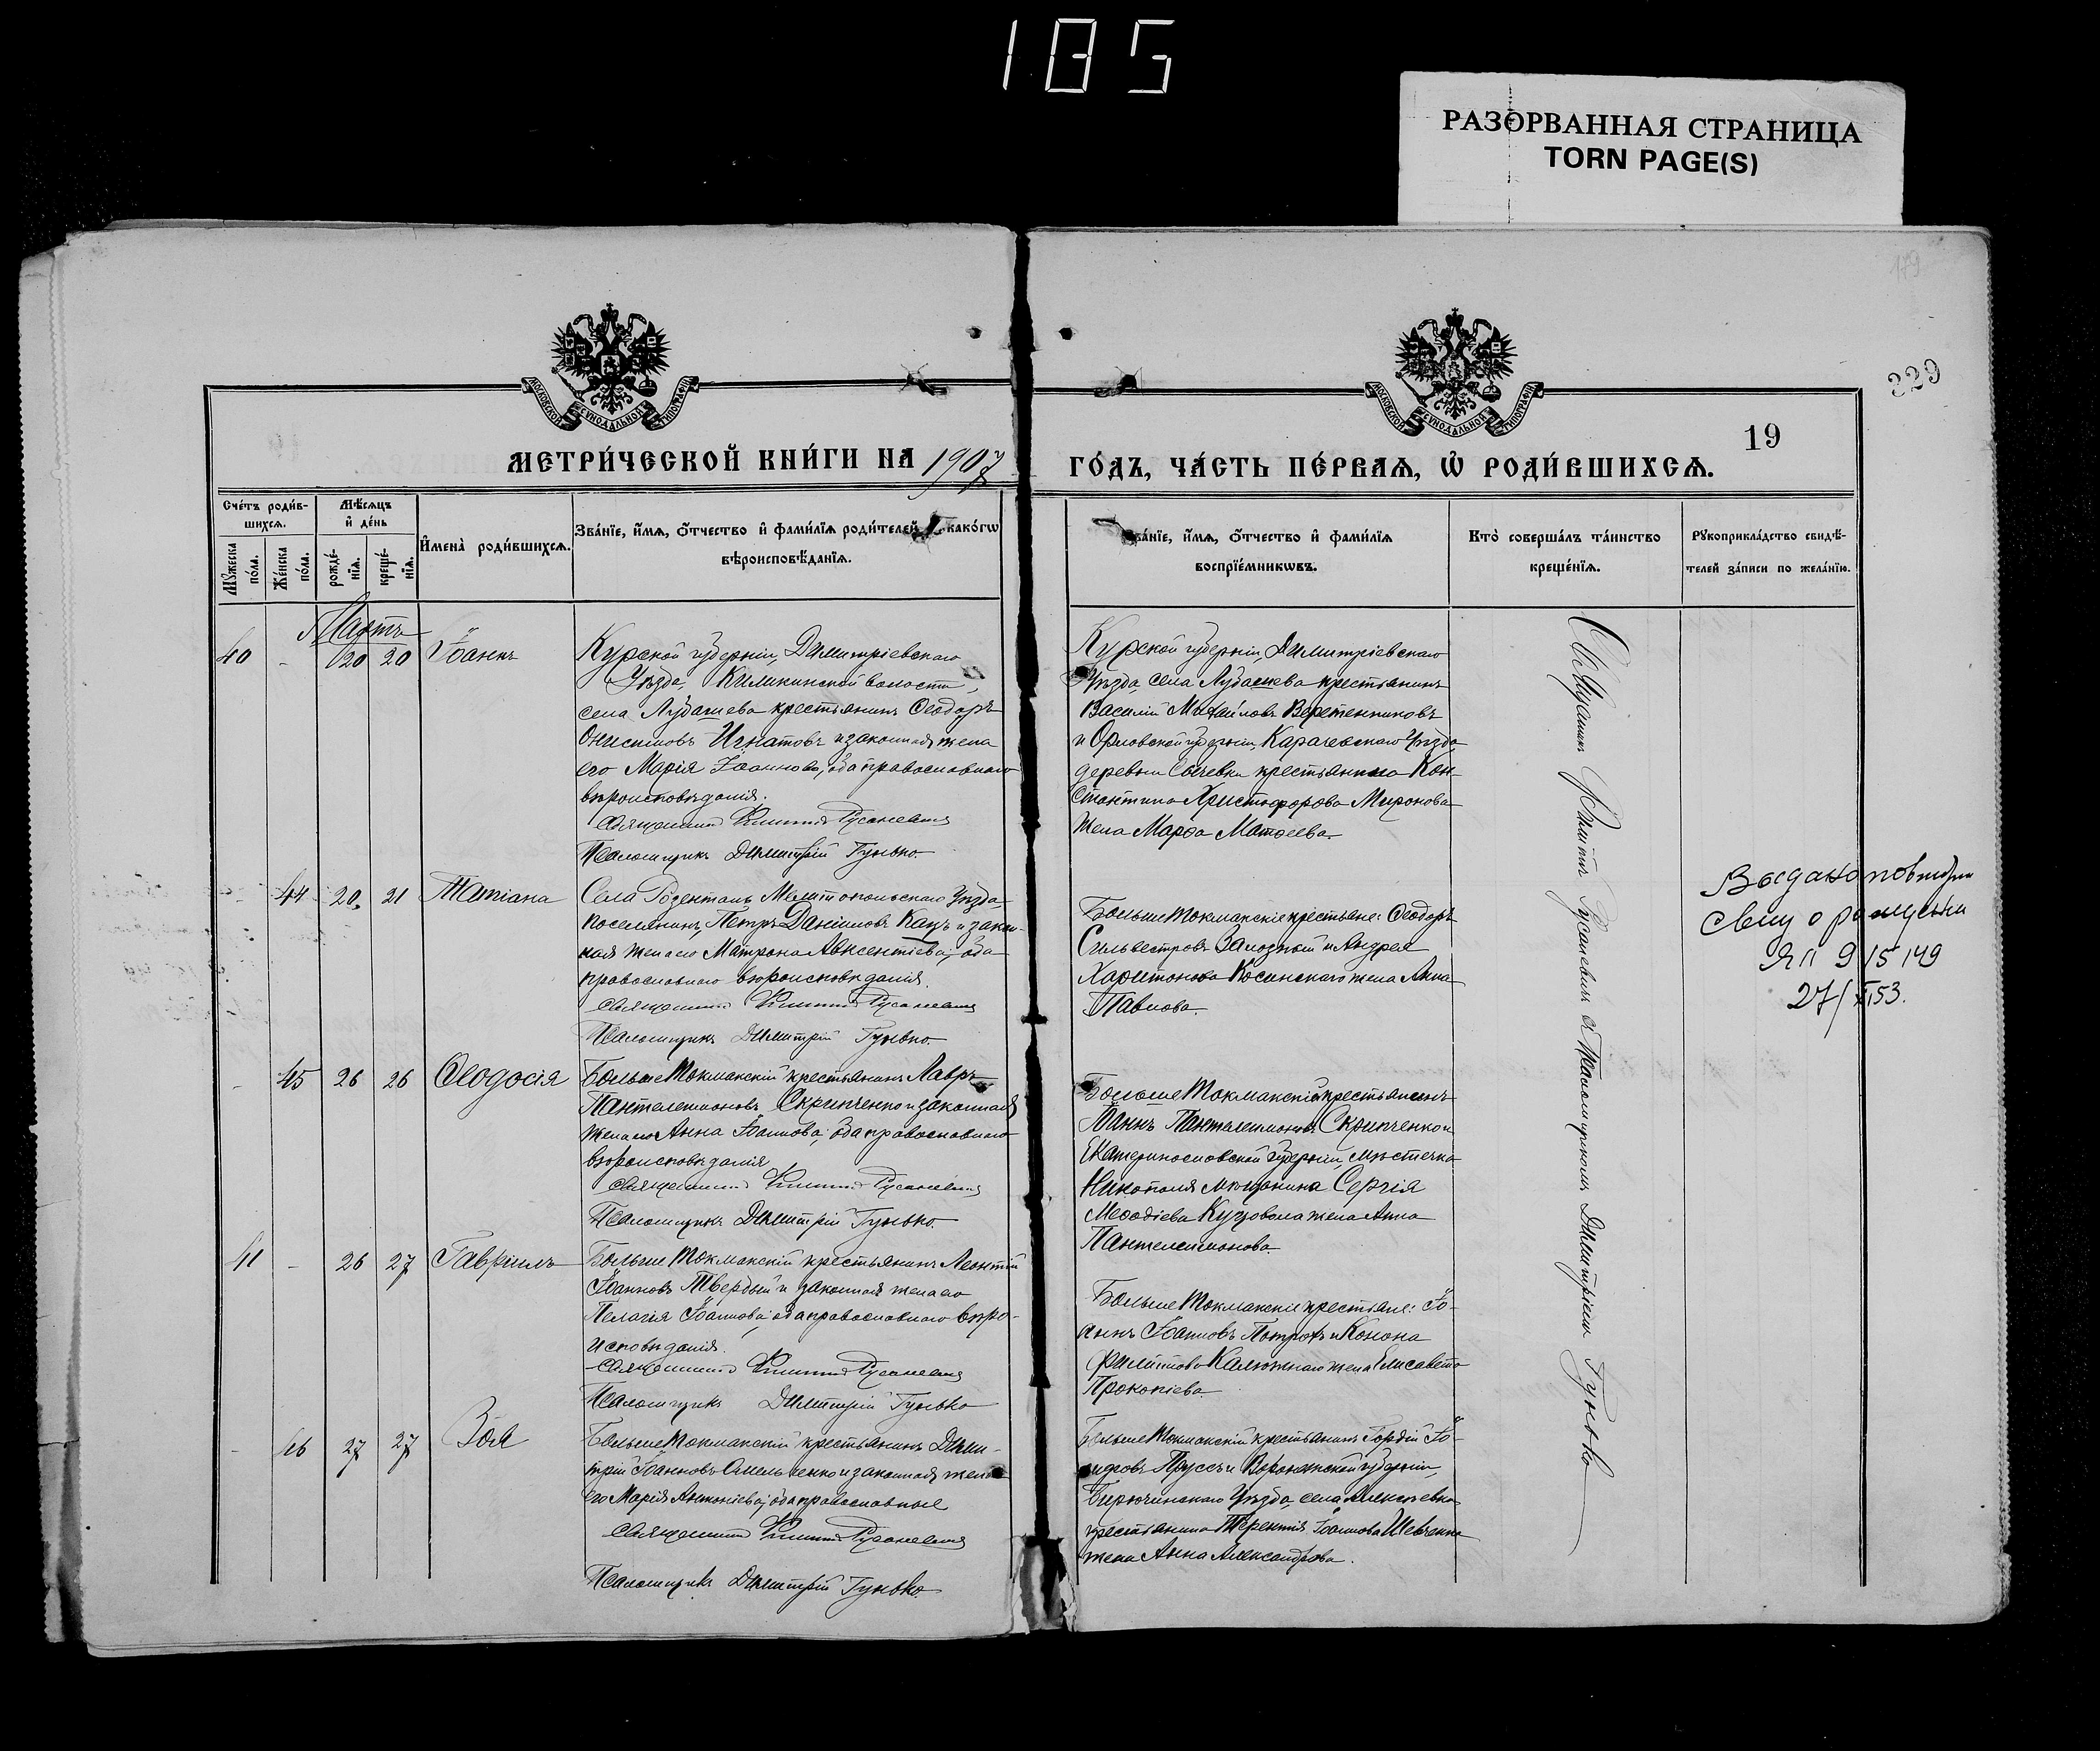 185
РАЗОРВАННАЯ СТРАНИЦА
TORN PAGE(S)
179
229
19
МОСКОВСКОЙ СѴНОДАЛЬНОЙ ТИПОГРАФІИ
МОСКОВСКОЙ СѴНОДАЛЬНОЙ ТИПОГРАФІИ
МЕТРИ́ЧЕСКОЙ КНИ́ГИ НА 1907
ГО́ДЪ, ЧА́СТЬ ПЕ́РВАѦ, Ѡ҆ РОДИ́ВШИХСѦ.
Сче́тъ роди́в-
шихсѧ.
Мꙋ́жеска по́ла.
Же́нска по́ла.
Мѣ́сѧцъ
и҆ де́нь
рожде́-нїѧ.
креще́-нїѧ.
И҆мена̀ роди́вшихсѧ.
Зва́нїе, и҆́мѧ, ѻ҆́тчество и҆ фами́лїѧ роди́телей, како́гѡ
вѣроисповѣ́данїѧ.
Зва́нїе, и҆́мѧ, ѻ҆́тчество и҆ фами́лїѧ
воспрїе́мникѡвъ.
Кто̀ соверша́лъ та́инство
креще́нїѧ.
Рꙋкоприкла́дство свидѣ́-
телей за́писи по жела́нїю.
Мартъ
40 - 20 20 Іоаннъ
Курской губерніи, Димитріевскаго
Уѣзда, волости,
села Лубашева крестьянинъ Ѳеодоръ
Онисимовъ Игнатовъ и законная жена
его Марія Іоаннова, оба православнаго
вѣроисповѣданія.
Священникъ Русаневичъ
Псаломщикъ Димитрій Гунько.
Курской губерніи, Димитріевскаго
Уѣзда, села Лубашева крестьянинъ
Василій Михайловъ Веретенниковъ
и Орловской губерніи, Карачевскаго Уѣзда
деревни крестьянина Кон-
стантина Христофорова Миронова
жена Марѳа Матѳеева.
- 44 20 21 Татіана
Села Розенталь Мелитопольскаго Уѣзда
поселянинъ Петръ Даніиловъ Кацъ и закон-
ная жена его Матрона Авксентіева, оба
православнаго вѣроисповѣданія.
Священникъ Русаневичъ
Псаломщикъ Димитрій Гунько.
Больше Токмакскіе крестьяне: Ѳеодоръ
Сильвестровъ Залозный и Андрея
Харитонова Косинскаго жена Анна
Павлова.
Выдано повторн
свид о рождении
ЯП 915149
27/XI 53.
- 45 26 26 Ѳеодосія
Больше Токмакскій крестьянинъ Лавръ
Пантелеимоновъ Скрипченко и законная
жена его Анна Іоаннова, оба православнаго
вѣроисповѣданія
Священникъ Русаневичъ
Псаломщикъ Димитрій Гунько.
Больше Токмакскій крестьянинъ
Іоаннъ Пантелеимоновъ Скрипченко и
Екатеринославской губерніи, мѣстечка
Никополя мѣщанина Сергія
Меѳодіева жена Анна
Пантелеимонова.
41 - 26 27 Гавріилъ
Больше Токмакскій крестьянинъ Леонтій
Іоанновъ Твердый и законная жена его
Пелагія Іоаннова, оба православнаго вѣро-
исповѣданія.
Священникъ Русаневичъ
Псаломщикъ Димитрій Гунько
Больше Токмакскіе крестьяне: Іо-
аннъ Іоанновъ и Конона
Филиппова Калюжнаго жена Елисавета
Прокопіева.
- 46 27 27 Зоя
Больше Токмакскій крестьянинъ Дими-
трій Іоанновъ Омельченко и законная жена
его Марія Антоніева, оба православные
Священникъ Русаневичъ
Псаломщикъ Димитрій Гунько.
Больше Токмакскій крестьянинъ Гордій
Пруссъ и Воронежской губерніи,
Бирюченскаго Уѣзда, села Алексѣевки
крестьянина Терентія Іоаннова Шевченка
жена Анна Александрова.
Священникъ Русаневичъ съ Псаломщикомъ Димитріемъ Гунько